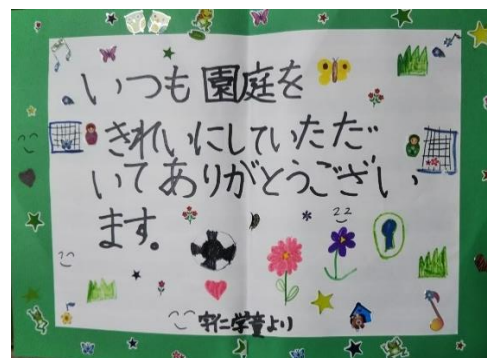 いつも園庭を
きれいにしていただ
いてありがとうござい
ます。
宇仁学童より